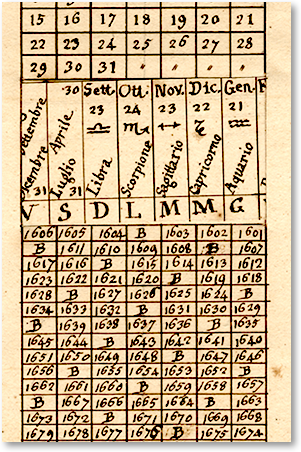 15 16 17 18 19 20 21
22 23 24 25 26 27 28
29 30 31 " " " "
30 Sett. Ott. Nov. Dic. Gen. F
23 24 23 22 21
♎ ♏ ♐ ♑ ♒
Settembre Aprile
Dicembre Luglio Libra Scorpione Sagittario Capricorno Aquario
31 31
V S D L M M G
1606 1605 1604 B 1603 1602 1601
B 1611 1610 1609 1608 B 1607
1617 1616 B 1615 1614 1613 1612
1623 1622 1621 1620 B 1619 1618
1628 B 1627 1626 1625 1624 B
1634 1633 1632 B 1631 1630 1629
B 1639 1638 1637 1636 B 1635
1645 1644 B 1643 1642 1641 1640
1651 1650 1649 1648 B 1647 1646
1656 B 1655 1654 1653 1652 B
1662 1661 1660 B 1659 1658 1657
B 1667 1666 1665 1664 B 1663
1673 1672 B 1671 1670 1669 1668
1679 1678 1677 1676 B 1675 1674